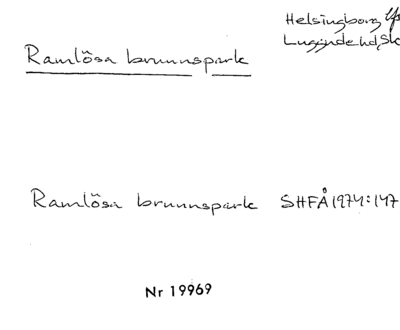 Helsingborg
Ramlösa brunnspark
Luggude hd, Sk
Ramlösa brunnspark SHFÅ 1974:147
Nr 19969